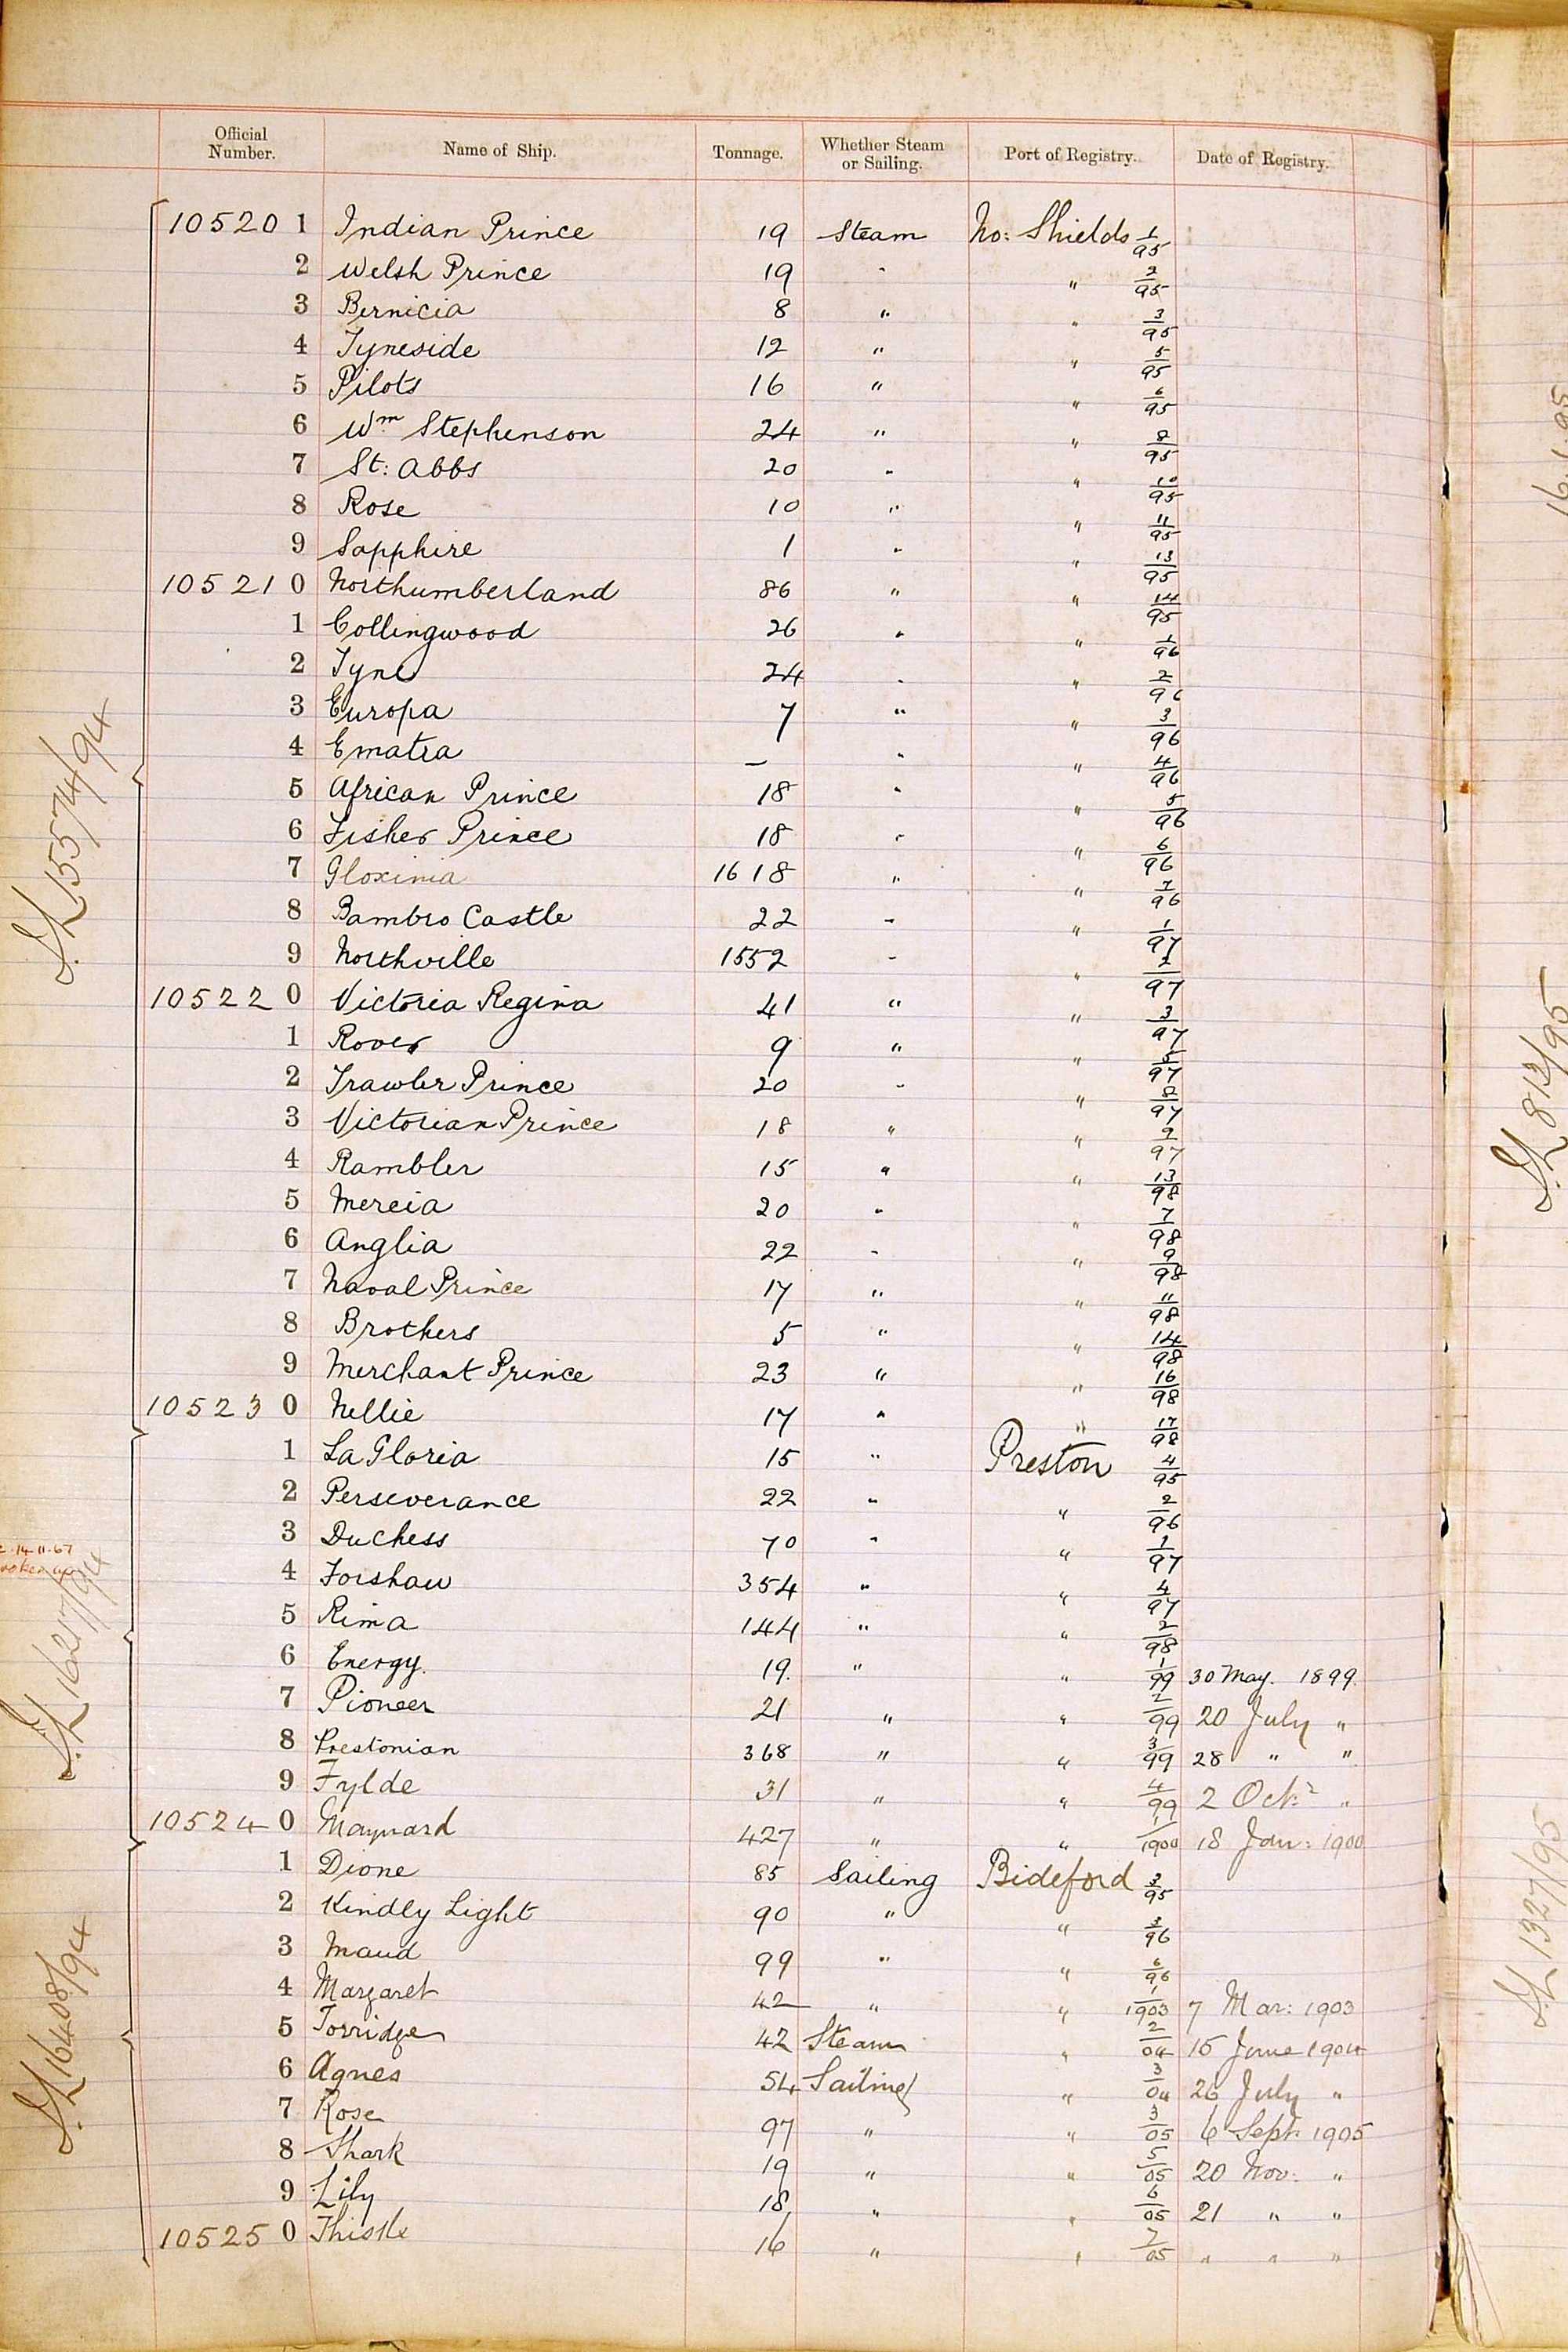 Official Number. Name of Ship. Tonnage. Whether Steam or Sailing. Port of Registry. Date of Registry.
10520 1 Indian Prince 19 Steam No: Shields 1/95
2 Welsh Prince 19 " " 2/95
3 Bernicia 8 " " 3/95
4 Tyneside 12 " " 5/95
5 Pilots 16 " " 6/95
6 Wm Stephenson 24 " " 8/95
7 St: Abbs 20 " " 10/95
8 Rose 10 " " 11/95
9 Sapphire 1 " " 13/95
10521 0 Northumberland 86 " " 14/95
1 Collingwood 26 " " 1/96
2 Tyne 24 " " 2/96
3 Europa 7 " " 3/96
4 Ematra — " " 4/96
5 African Prince 18 " " 5/96
6 Fisher Prince 18 " " 6/96
7 Gloxinia 1618 " " 7/96
8 Bambro Castle 22 " " 1/97
9 Northville 1552 " " 2/97
10522 0 Victoria Regina 41 " " 3/97
1 Rover 9 " " 5/97
2 Trawler Prince 20 " " 8/97
3 Victorian Prince 18 " " 9/97
4 Rambler 15 " " 13/98
5 Mercia 20 " " 7/98
6 Anglia 22 " " 9/98
7 Naval Prince 17 " " 11/98
8 Brothers 5 " " 14/98
9 Merchant Prince 23 " " 16/98
10523 0 Nellie 17 " " 17/98
1 La Gloria 15 " Preston 4/95
2 Perseverance 22 " " 2/96
3 Duchess 70 " " 1/97
4 Forshaw 354 " " 4/97
5 Rima 144 " " 2/98
6 Energy. 19. " " 1/99 30 May. 1899
7 Pioneer 21 " " 2/99 20 July "
8 Prestonian 368 " " 3/99 28 " "
9 Fylde 31 " " 4/99 2 Octr "
10524 0 Maynard 427 " " 1/1900 18 Jan: 1900
1 Dione 85 Sailing Bideford 3/95
2 Kindly Light 90 " " 3/96
3 Maud 99 " " 6/96
4 Margaret 42 " " 1/1903 7 Mar: 1903
5 Torridge 42 Steam " 2/04 15 June 1904
6 Agnes 54 Sailing " 3/04 26 July "
7 Rose 97 " " 3/05 6 Sept. 1905
8 Shark 19 " " 5/05 20 Nov: "
9 Lily 18 " " 6/05 21 " "
10525 0 Thistle 16 " " 7/05 " " "
15574/94
14.11.67
16217/94
16408/94
812/95
1327/95